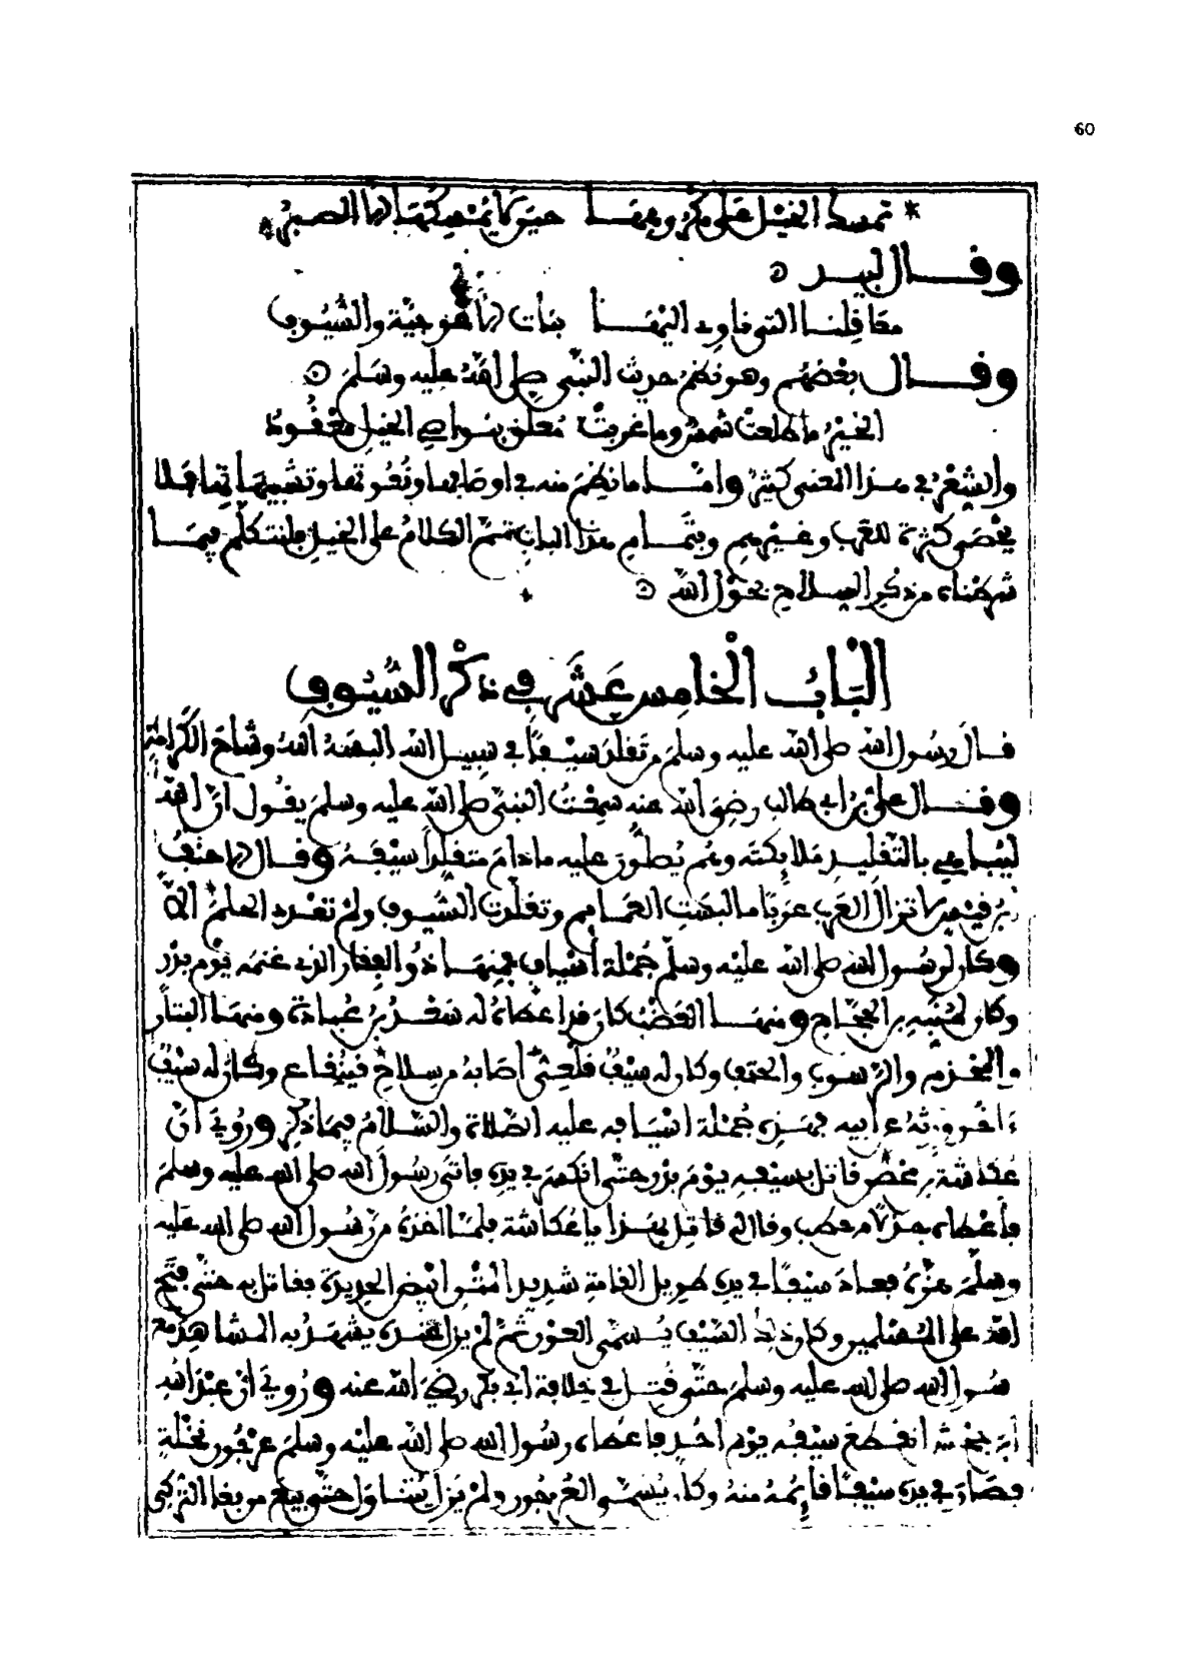 60
* تمسك الخيل على مكروهها حين لا يمسكها الا الصبر *
وقال لبيد
معاقلنا التي ناوي اليها بنات الاعوجية والسيوف
وقال بعضهم وهو نظم حديث النبي صلى الله عليه وسلم
الخير ما طلعت شمس وما غربت معلق بنواصي الخيل معقود
والشعر في هذا المعنى كثير واما ما نظم منه في اوصافها ونعوتها وتشبيهاتها فلا
يحصى كثرة للعرب وغيرهم وبتمام هذا الباب تم الكلام على الخيل فلنتكلم فيما
شرطناه من ذكر السلاح بحول الله
الباب الخامس عشر في ذكر السيوف
قال رسول الله صلى الله عليه وسلم من تقلد سيفا في سبيل الله البسه الله وشاح الكرامة
وقال علي بن ابي طالب رضي الله عنه سمعت النبي صلى الله عليه وسلم يقول ان الله
ليباهي بالمتقلد ملائكته وهم يصلون عليه ما دام متقلدا سيفه وقال الاحنف
بن قيس لا تزال العرب عربا ما لبست العمايم وتقلدت السيوف ولم تعدد الحلم
وكان لرسول الله صلى الله عليه وسلم جملة أسياف فمنها ذو الفقار الذي غنمه يوم بدر
وكان لمنبه بن الحجاج ومنها العضب كان قد اعطاه له سعد بن عبادة ومنها البتار
والمخذم والرسوب والحتف وكان له سيف قلعي أصابه من سلاح قينقاع وكان له سيف
ءاخر ورثه عن أبيه فهذه جملة اسيافه عليه الصلاة والسلام فيما ذكر وروي ان
عكاشة بن محصن قاتل بسيفه يوم بدر حتى انكسر في يده فاتى رسول الله صلى الله عليه وسلم
فأعطاه جذلا من حطب وقال له قاتل بهذا يا عكاشة فلما اخذه من رسول الله صلى الله عليه
وسلم هزه فعاد سيفا في يده طويل القامة شديد المتن ابيض الحديدة فقاتل به حتى فتح
الله على المسلمين وكان ذلك السيف يسمى العون ثم لم يزل عنده يشهد به المشاهد مع
رسول الله صلى الله عليه وسلم حتى قتل في خلافة ابي بكر رضي الله عنه وروي أن عبد الله
ابن جحش انقطع سيفه يوم أحد فاعطاه رسول الله صلى الله عليه وسلم عرجون نخلة
فصار في يده سيفا قائمه منه وكان يسمى العرجون ولم يزل يتناول حتى بيع من بغا التركي